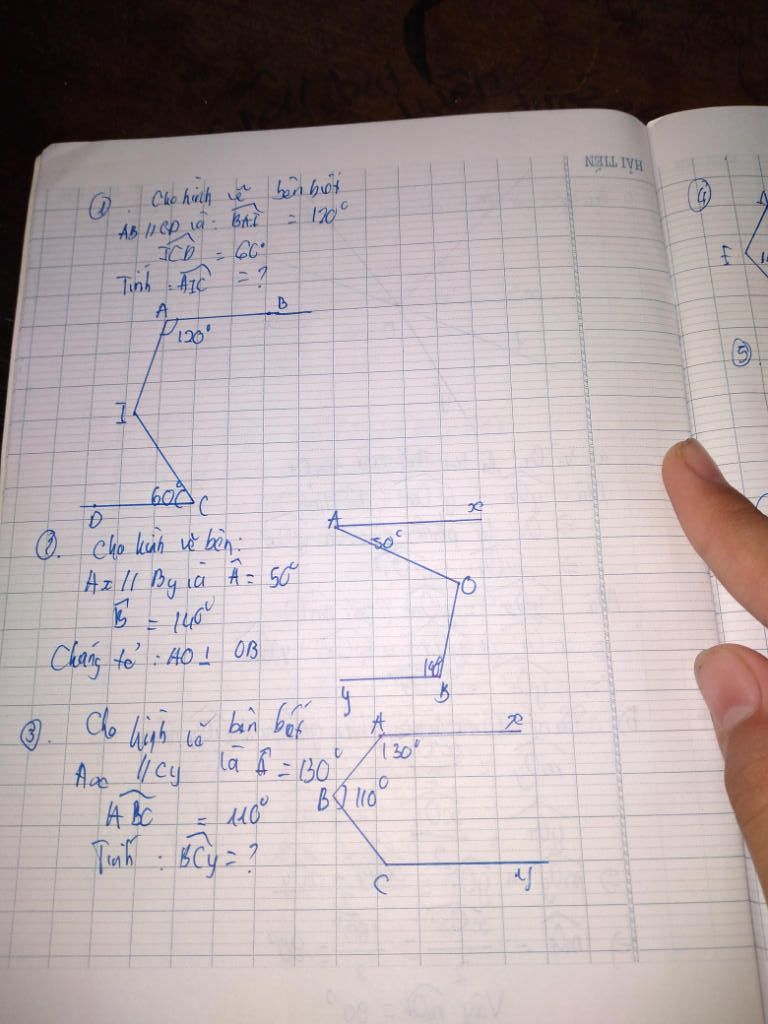 HẢI TIẾN
① . Cho hình vẽ bên biết
AB // CD và : BAI = 120°
ICD = 60°
Tính : AIC = ?
A B
120°
I
60° C
D
②. Cho hình vẽ bên :
Ax // By và Â = 50°
B = 140°
Chứng tỏ : AO ⊥ OB
A x
50°
O
140°
y B
③. Cho hình vẽ bên biết
Ax // Cy và Â = 130°
ABC = 110°
Tính : BCy = ?
A x
130°
B 110°
C y
④
I
⑤.